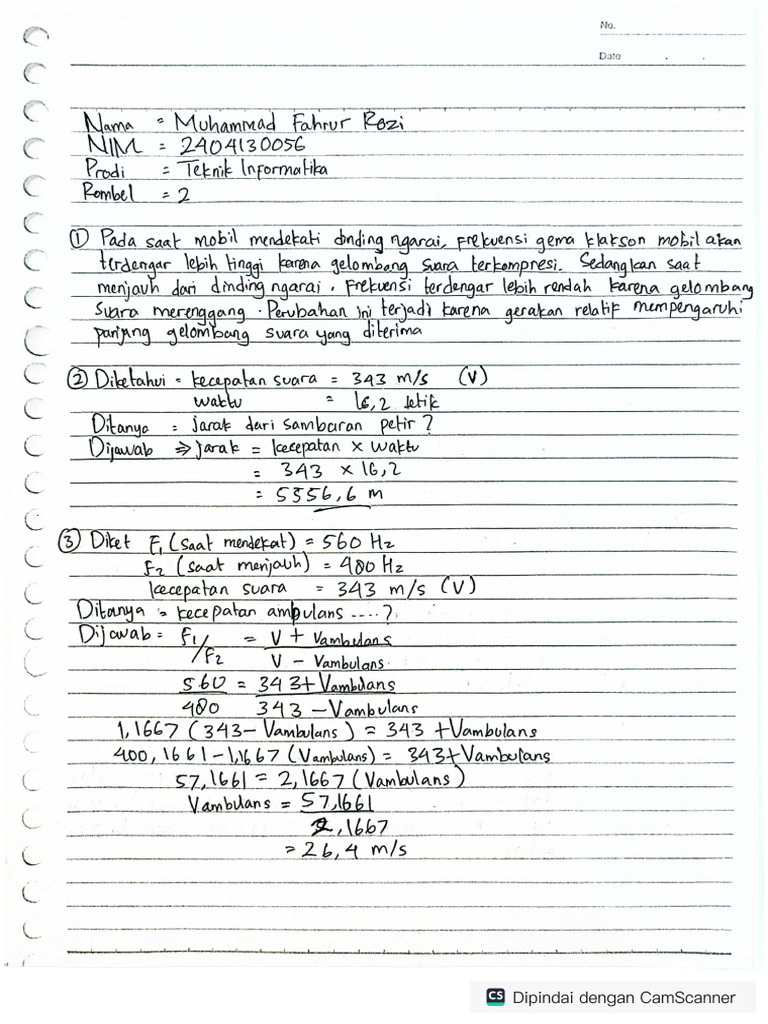 No.
Date
Nama = Muhammad Fahrur Rozi
NIM = 2404130056
Prodi = Teknik Informatika
Rombel = 2
① Pada saat mobil mendekati dinding ngarai, frekuensi gema klakson mobil akan
terdengar lebih tinggi karena gelombang suara terkompresi. Sedangkan saat
menjauh dari dinding ngarai, frekuensi terdengar lebih rendah karena gelombang
suara merenggang. Perubahan ini terjadi karena gerakan relatif mempengaruhi
panjang gelombang suara yang diterima
② Diketahui = kecepatan suara = 343 m/s (V)
waktu = 16,2 detik
Ditanya = jarak dari sambaran petir?
Dijawab ⇒ jarak = kecepatan × waktu
= 343 × 16,2
= 5556,6 m
③ Diket F₁ (saat mendekat) = 560 Hz
F₂ (saat menjauh) = 480 Hz
kecepatan suara = 343 m/s (V)
Ditanya = kecepatan ambulans ....?
Dijawab = F₁/F₂ = V + Vambulans
V - Vambulans
560 = 343 + Vambulans
480 343 - Vambulans
1,1667 (343 - Vambulans) = 343 + Vambulans
400,1661 - 1,1667 (Vambulans) = 343 + Vambulans
57,1661 = 2,1667 (Vambulans)
Vambulans = 57,1661
2,1667
= 26,4 m/s
CS Dipindai dengan CamScanner